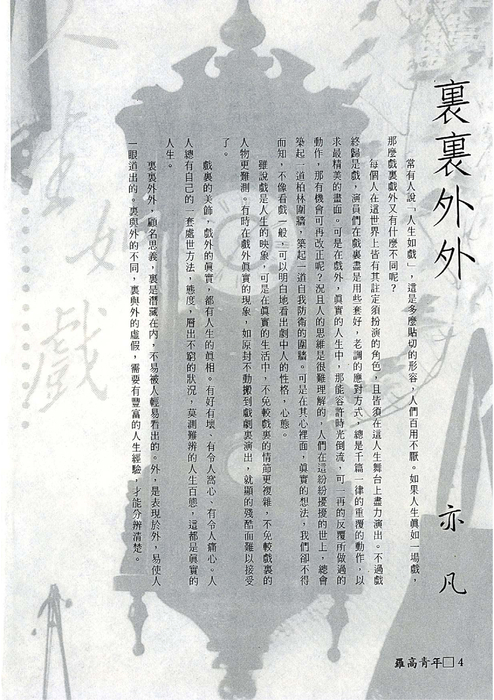 裏裏外外
亦凡
常有人說「人生如戲」，這是多麼貼切的形容，人們百用不厭。如果人生眞如一場戲，
那麼戲裏戲外又有什麼不同呢？
每個人在這世界上皆有其註定須扮演的角色，且皆須在這人生舞台上盡力演出。不過戲
終歸是戲，演員們在戲裏盡是用些套好，老調的應對方式，總是千篇一律的重覆的動作，以
求最精美的畫面。可是在戲外，眞實的人生中，那能容許時光倒流，可一再的反覆所做過的
動作，那有機會可再改正呢？況且人的思維是很難理解的，人們在這紛紛擾擾的世上，總會
築起一道柏林圍牆，築起一道自我防衛的圍牆。可是在其心裡面，眞實的想法，我們卻不得
而知，不像看戲一般，可以明白地看出劇中人的性格，心態。
雖說戲是人生的映象，可是在眞實的生活中，不免較戲裏的情節更複雜，不免較戲裏的
人物更難測。有時在戲外眞實的現象，如原封不動搬到戲劇裏演出，就顯的殘酷而難以接受
了。
戲裏的美飾，戲外的眞實，都有人生的眞相。有好有壞、有令人窩心、有令人痛心。人
人總有自己的一套處世方法，態度，層出不窮的狀況，莫測難辨的人生百態，這都是眞實的
人生。
裏裏外外，顧名思義，裏是潛藏在內，不易被人輕易看出的。外，是表現於外，易使人
一眼道出的。裏與外的不同，裏與外的虛假，需要有豐富的人生經驗，才能分辨清楚。
羅高青年□4